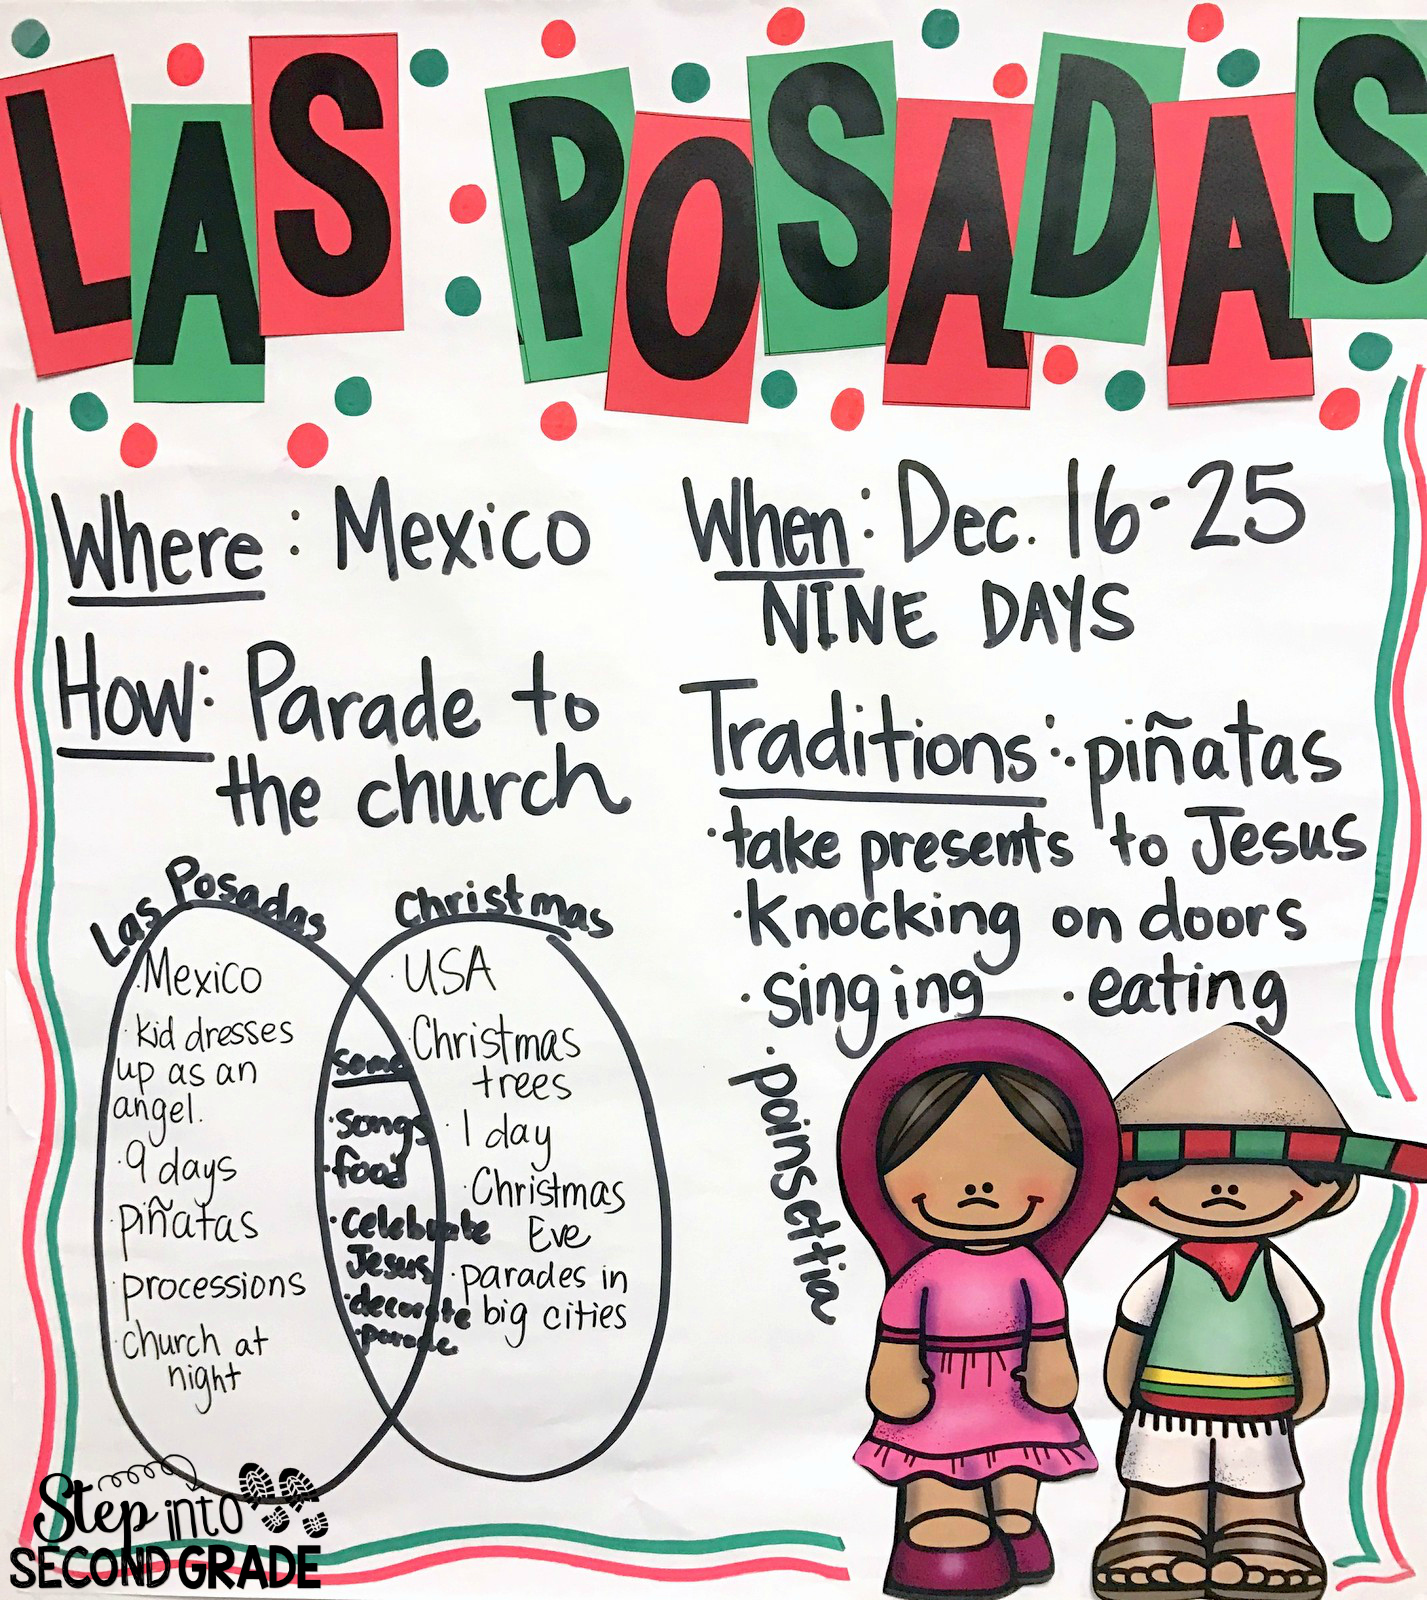 LAS POSADAS
Where: Mexico
When: Dec. 16-25
NINE DAYS
How: Parade to
the church
Traditions: · piñatas
· take presents to Jesus
· Knocking on doors
· singing · eating
· poinsettia
Las Posadas
· Mexico
· kid dresses
up as an
angel.
· 9 days
· piñatas
· processions
· church at
night
some
· songs
· food
· celebrate
Jesus
· decorate
· parade
Christmas
· USA
· Christmas
trees
· 1 day
· Christmas
Eve
· parades in
big cities
Step into
SECOND GRADE